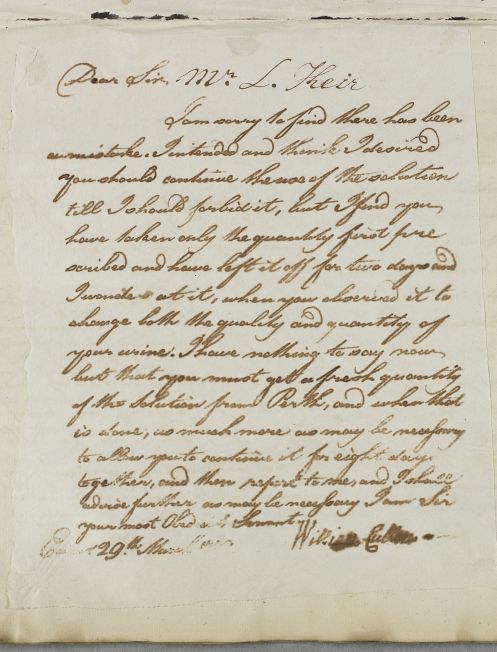 Dear Sir, Mr. L. Kier
I am sorry to find there has been
a mistake. I intended and think I desired
you should continue the use of the solution
till I should forbid it, but I find you
have taken only the quantity first pre
scribed and have left it off for two days and
I wonder at it, when you observed it to
change both the quality and quantity of
your urine. I have nothing to say now
but that you must get a fresh quantity
of the solution from Perth, and when that
is done, as much more as may be necessary
to allow you to continue it for eight days
together, and then report to me, and I shall
advise further as may be necessary I am Sir
your most Obed Servant
29th March William Cullen